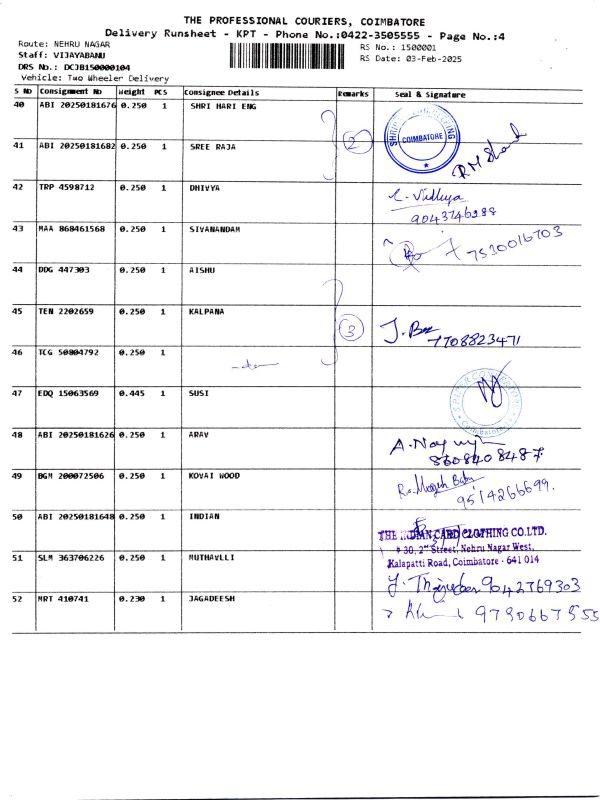 THE PROFESSIONAL COURIERS, COIMBATORE
Delivery Runsheet - KPT - Phone No.:0422-3505555 - Page No.:4
Route: NEHRU NAGAR
RS No.: 1500001
Staff: VIJAYABANU
RS Date: 03-Feb-2025
DRS No.: DCJB150000104
Vehicle: Two Wheeler Delivery
S No Consignment No Weight PCS Consignee Details Remarks Seal & Signature
40 ABI 20250181676 0.250 1 SHRI HARI ENG
COIMBATORE
2
41 ABI 20250181682 0.250 1 SREE RAJA
42 TRP 4598712 0.250 1 DHIVYA
9043746988
43 MAA 868461568 0.250 1 SIVANANDAM
7530016703
44 DDG 447303 0.250 1 AISHU
45 TEN 2202659 0.250 1 KALPANA
3
7708823471
46 TCG 50804792 0.250 1
47 EDQ 15063569 0.445 1 SUSI
48 ABI 20250181626 0.250 1 ARAV
8608408487
49 BGM 200072506 0.250 1 KOVAI WOOD
9514266699.
50 ABI 20250181648 0.250 1 INDIAN
THE INDIAN CARD CLOTHING CO.LTD.
# 30, 2nd Street, Nehru Nagar West,
Kalapatti Road, Coimbatore - 641 014
51 SLM 363706226 0.250 1 MUTHAVLLI
9042769303
52 MRT 410741 0.230 1 JAGADEESH
9790667555